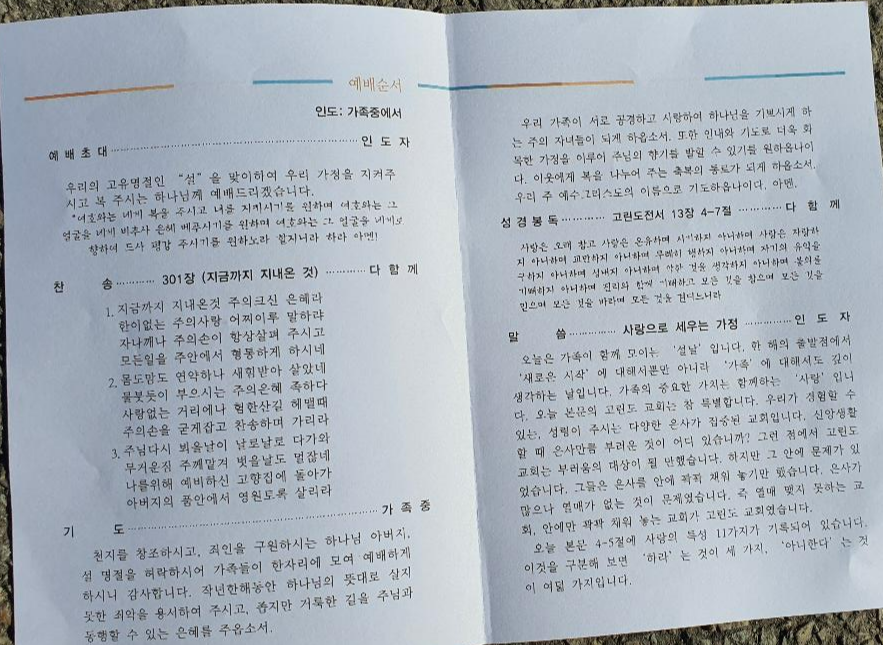 예배순서
인도: 가족중에서
예 배 초 대 ································ 인 도 자
우리의 고유명절인 “설”을 맞이하여 우리 가정을 지켜주
시고 복 주시는 하나님께 예배드리겠습니다.
“여호와는 네게 복을 주시고 너를 지키시기를 원하며 여호와는 그
얼굴을 네게 비추사 은혜 베푸시기를 원하며 여호와는 그 얼굴을 네게로
향하여 드사 평강 주시기를 원하노라 할지니라 하라 아멘!
찬 송 ············ 301장 (지금까지 지내온 것) ············ 다 함 께
1. 지금까지 지내온것 주의크신 은혜라
한이없는 주의사랑 어찌이루 말하랴
자나깨나 주의손이 항상살펴 주시고
모든일을 주안에서 형통하게 하시네
2. 몸도맘도 연약하나 새힘받아 살았네
물붓듯이 부으시는 주의은혜 족하다
사랑없는 거리에나 험한산길 헤맬때
주의손을 굳게잡고 찬송하며 가리라
3. 주님다시 뵈올날이 날로날로 다가와
무거운짐 주께맡겨 벗을날도 멀잖네
나를위해 예비하신 고향집에 돌아가
아버지의 품안에서 영원토록 살리라
기 도 ································ 가 족 중
천지를 창조하시고, 죄인을 구원하시는 하나님 아버지,
설 명절을 허락하시어 가족들이 한자리에 모여 예배하게
하시니 감사합니다. 작년한해동안 하나님의 뜻대로 살지
못한 죄악을 용서하여 주시고, 좁지만 거룩한 길을 주님과
동행할 수 있는 은혜를 주옵소서.
우리 가족이 서로 공경하고 사랑하여 하나님을 기쁘시게 하
는 주의 자녀들이 되게 하옵소서. 또한 인내와 기도로 더욱 화
목한 가정을 이루어 주님의 향기를 발할 수 있기를 원하옵나이
다. 이웃에게 복을 나누어 주는 축복의 통로가 되게 하옵소서.
우리 주 예수.그리스도의 이름으로 기도하옵나이다. 아멘.
성 경 봉 독 ············ 고린도전서 13장 4-7절 ············ 다 함 께
사랑은 오래 참고 사랑은 온유하며 시기하지 아니하며 사랑은 자랑하
지 아니하며 교만하지 아니하며 무례히 행하지 아니하며 자기의 유익을
구하지 아니하며 성내지 아니하며 악한 것을 생각하지 아니하며 불의를
기뻐하지 아니하며 진리와 함께 기뻐하고 모든 것을 참으며 모든 것을
믿으며 모든 것을 바라며 모든 것을 견디느니라
말 씀 ············ 사랑으로 세우는 가정 ············ 인 도 자
오늘은 가족이 함께 모이는 ‘설날’입니다. 한 해의 출발점에서
‘새로운 시작’에 대해서뿐만 아니라 ‘가족’에 대해서도 깊이
생각하는 날입니다. 가족의 중요한 가치는 함께하는 ‘사랑’입니
다. 오늘 본문의 고린도 교회는 참 특별합니다. 우리가 경험할 수
있는, 성령이 주시는 다양한 은사가 집중된 교회입니다. 신앙생활
할 때 은사만큼 부러운 것이 어디 있습니까? 그런 점에서 고린도
교회는 부러움의 대상이 될 만했습니다. 하지만 그 안에 문제가 있
었습니다. 그들은 은사를 안에 꽉꽉 채워 놓기만 했습니다. 은사가
많으나 열매가 없는 것이 문제였습니다. 즉 열매 맺지 못하는 교
회, 안에만 꽉꽉 채워 놓는 교회가 고린도 교회였습니다.
오늘 본문 4-5절에 사랑의 특성 11가지가 기록되어 있습니다.
이것을 구분해 보면 ‘하라’는 것이 세 가지, ‘아니한다’는 것
이 여덟 가지입니다.